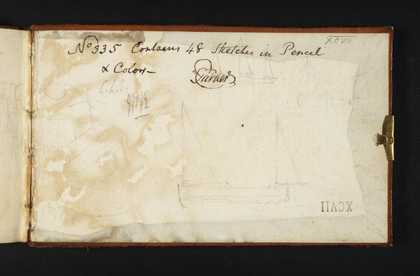 No 335 Contains 48 Sketches in Pencil
& Colors—
XCVII